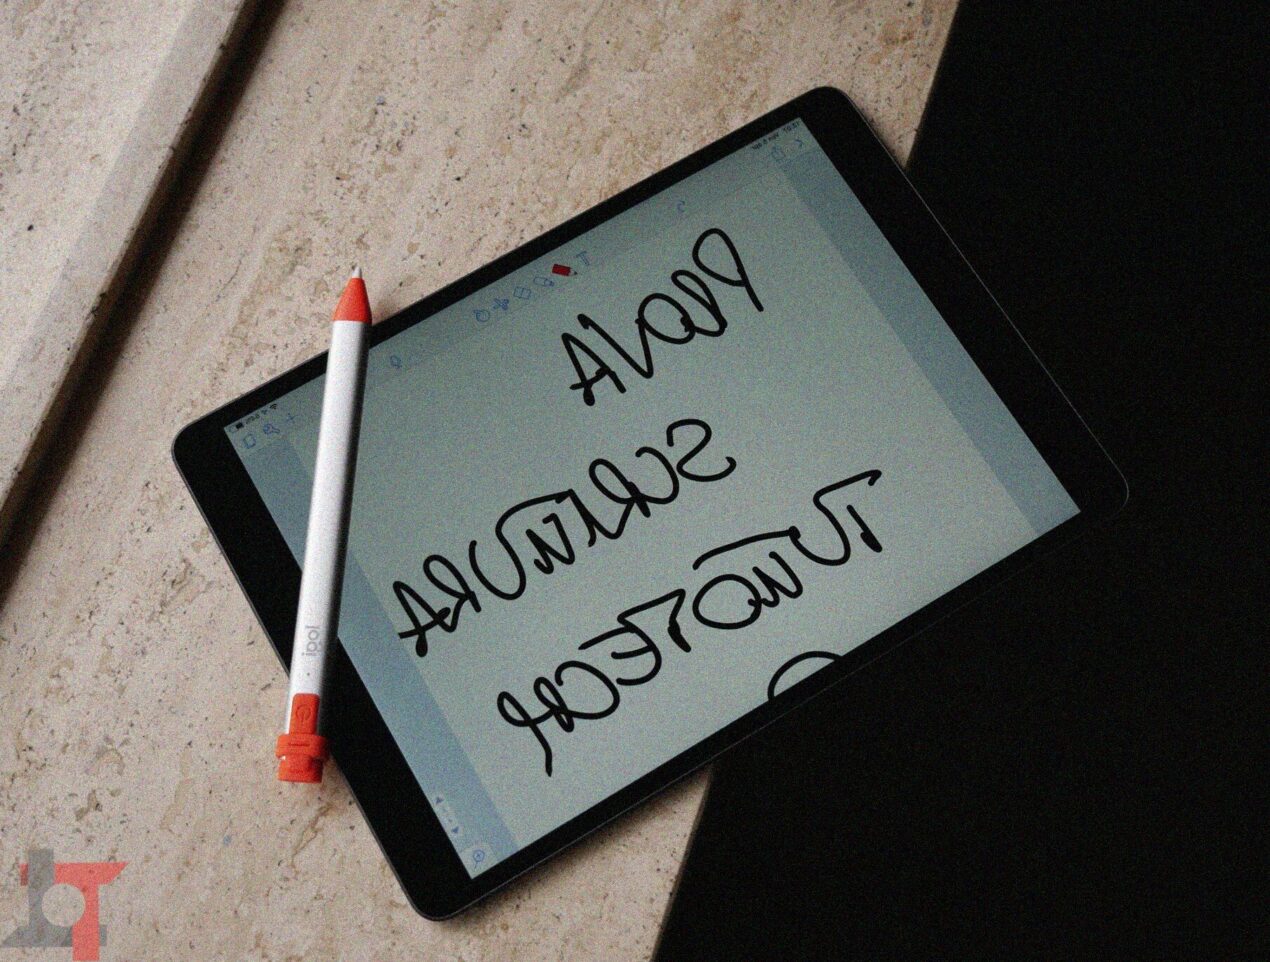 PROVA
SCRITTURA
TUTTOTECH
logi